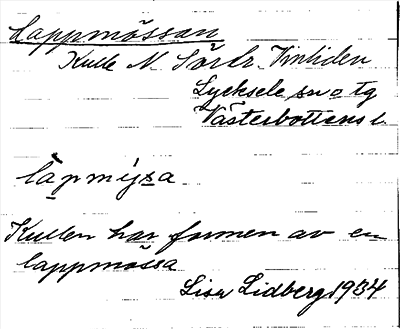 Lappmössan
Kulle N. Sörtr. Vinliden
Lycksele sn o tg
Västerbottens l.
làpmi̯sa
Kullen har formen av en
lappmössa
Lisa Lidberg 1934